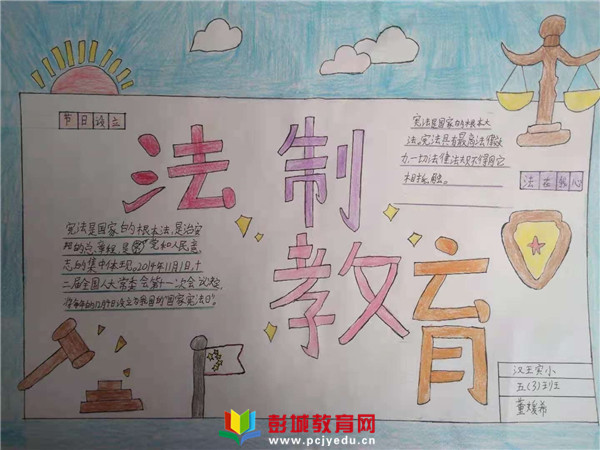 节日设立
法制
教育
宪法是国家的根本大
法,宪法具有最高法律效
力,一切法律法规不得同它
相抵触。
法在我心
宪法是国家的根本法,是治安
邦的总章程,是党和人民意
志的集中体现。2014年11月1日,十
二届全国人大常委会第十一次会议决定
每年的12月4日设立为我国的"国家宪法日"。
汉王实小
五(3)班
董媛希
彭城教育网
www.pcjyedu.cn